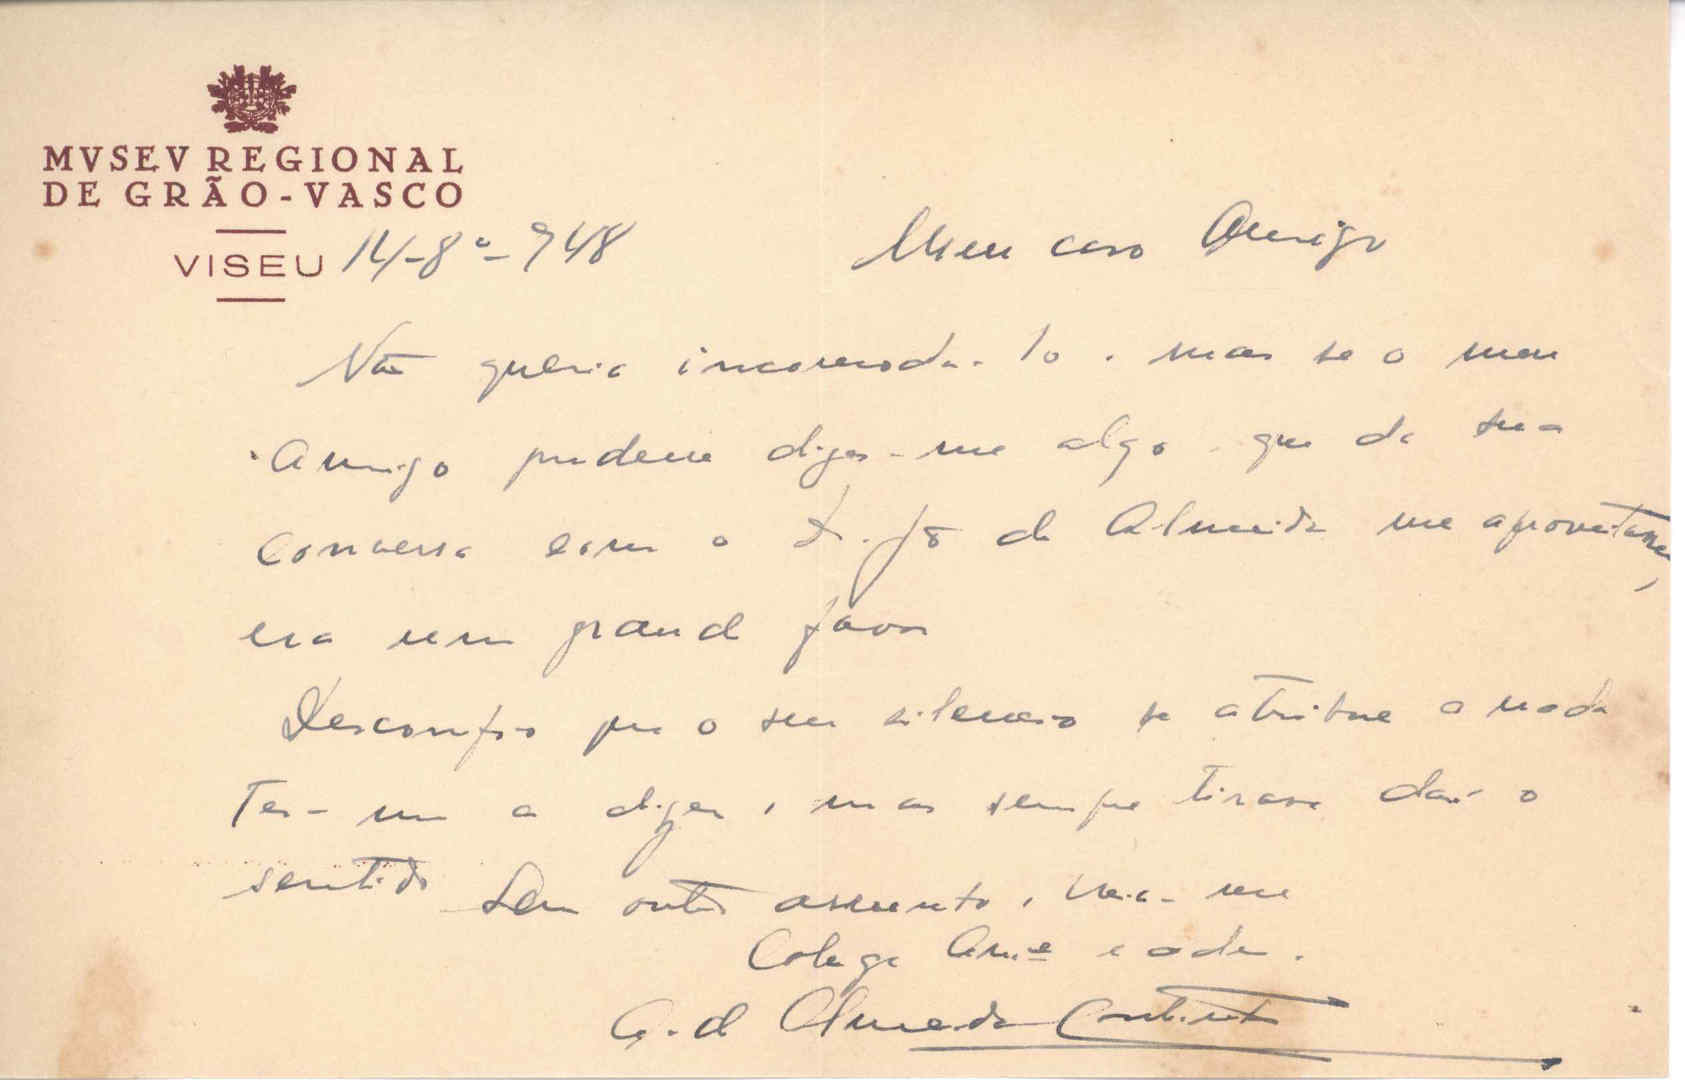 MVSEV REGIONAL
DE GRÃO-VASCO
VISEU 14-8º-948
Meu caro Amigo
Não queria incomoda-lo, mas se o meu
Amigo pudesse dizer-me algo que da sua
conversa com o D. Jº de Almeida me aproveitasse,
era um grand favor
Desconfio que o seu silencio se atribue a nada
Ter-me a dizer, mas sempre tirava daí o
sentido Sem outro assunto, creia-me
Colega Amº e
A. d Almeida Coutinho